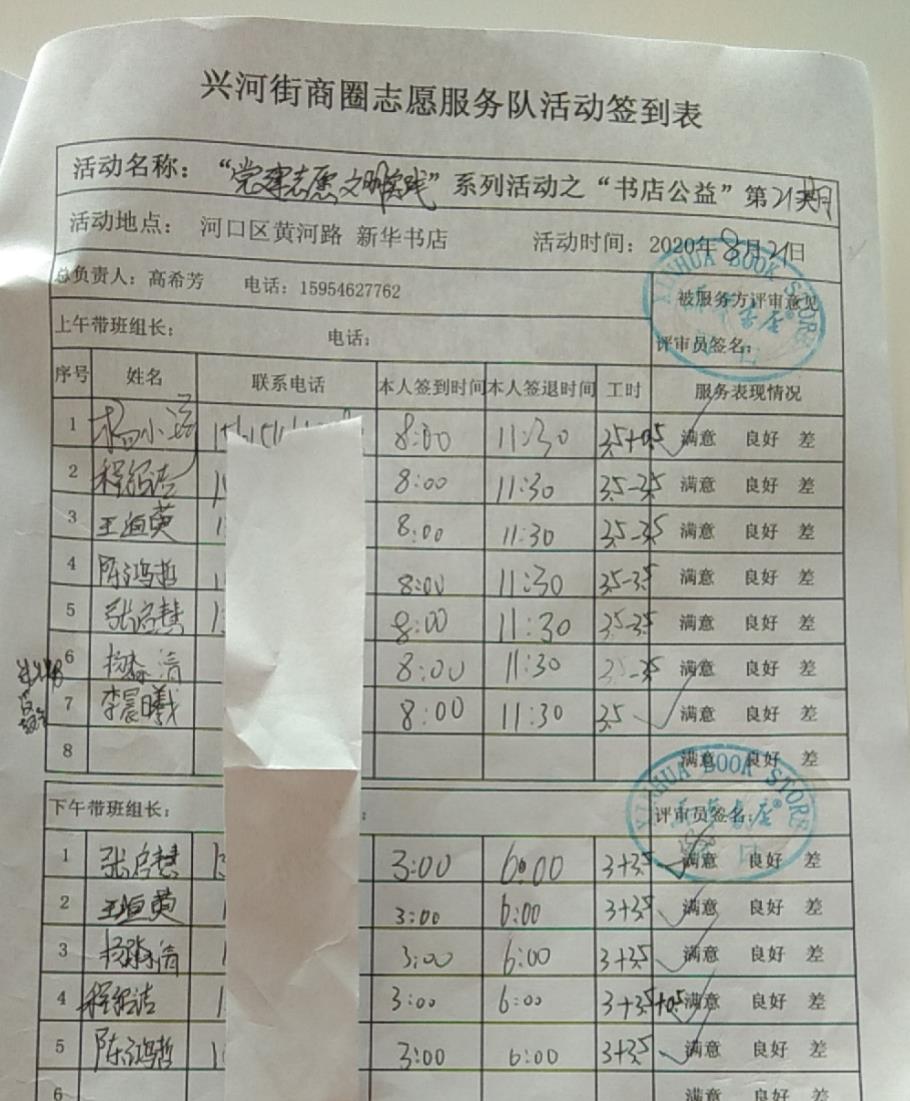 兴河街商圈志愿服务队活动签到表
活动名称：“党建志愿文明实践”系列活动之“书店公益”第21期
活动地点： 河口区黄河路 新华书店 活动时间：2020年8月21日
总负责人：高希芳 电话：15954627762 被服务方评审意见
上午带班组长： 电话： 评审员签名：
XINHUA BOOK STORE
新华书店®
序号 姓名 联系电话 本人签到时间 本人签退时间 工时 服务表现情况
1 杨小 8:00 11:30 3.5+0.5 满意 良好 差
2 程绍洁 8:00 11:30 3.5-3.5 满意 良好 差
3 王恒英 8:00 11:30 3.5-3.5 满意 良好 差
4 陈鸿哲 8:00 11:30 3.5-3.5 满意 良好 差
5 张启慧 8:00 11:30 3.5-3.5 满意 良好 差
6 杨淼清 8:00 11:30 3.5-3.5 满意 良好 差
7 李晨曦 8:00 11:30 3.5 满意 良好 差
8 满意 良好 差
下午带班组长： ： 评审员签名：
XINHUA BOOK STORE
新华书店®
1 张启慧 3:00 6:00 3+3.5 满意 良好 差
2 王恒英 3:00 6:00 3+3.5 满意 良好 差
3 杨淼清 3:00 6:00 3+3.5 满意 良好 差
4 程绍洁 3:00 6:00 3+3.5+0.5 满意 良好 差
5 陈鸿哲 3:00 6:00 3+3.5 满意 良好 差
6 满意 良好 差